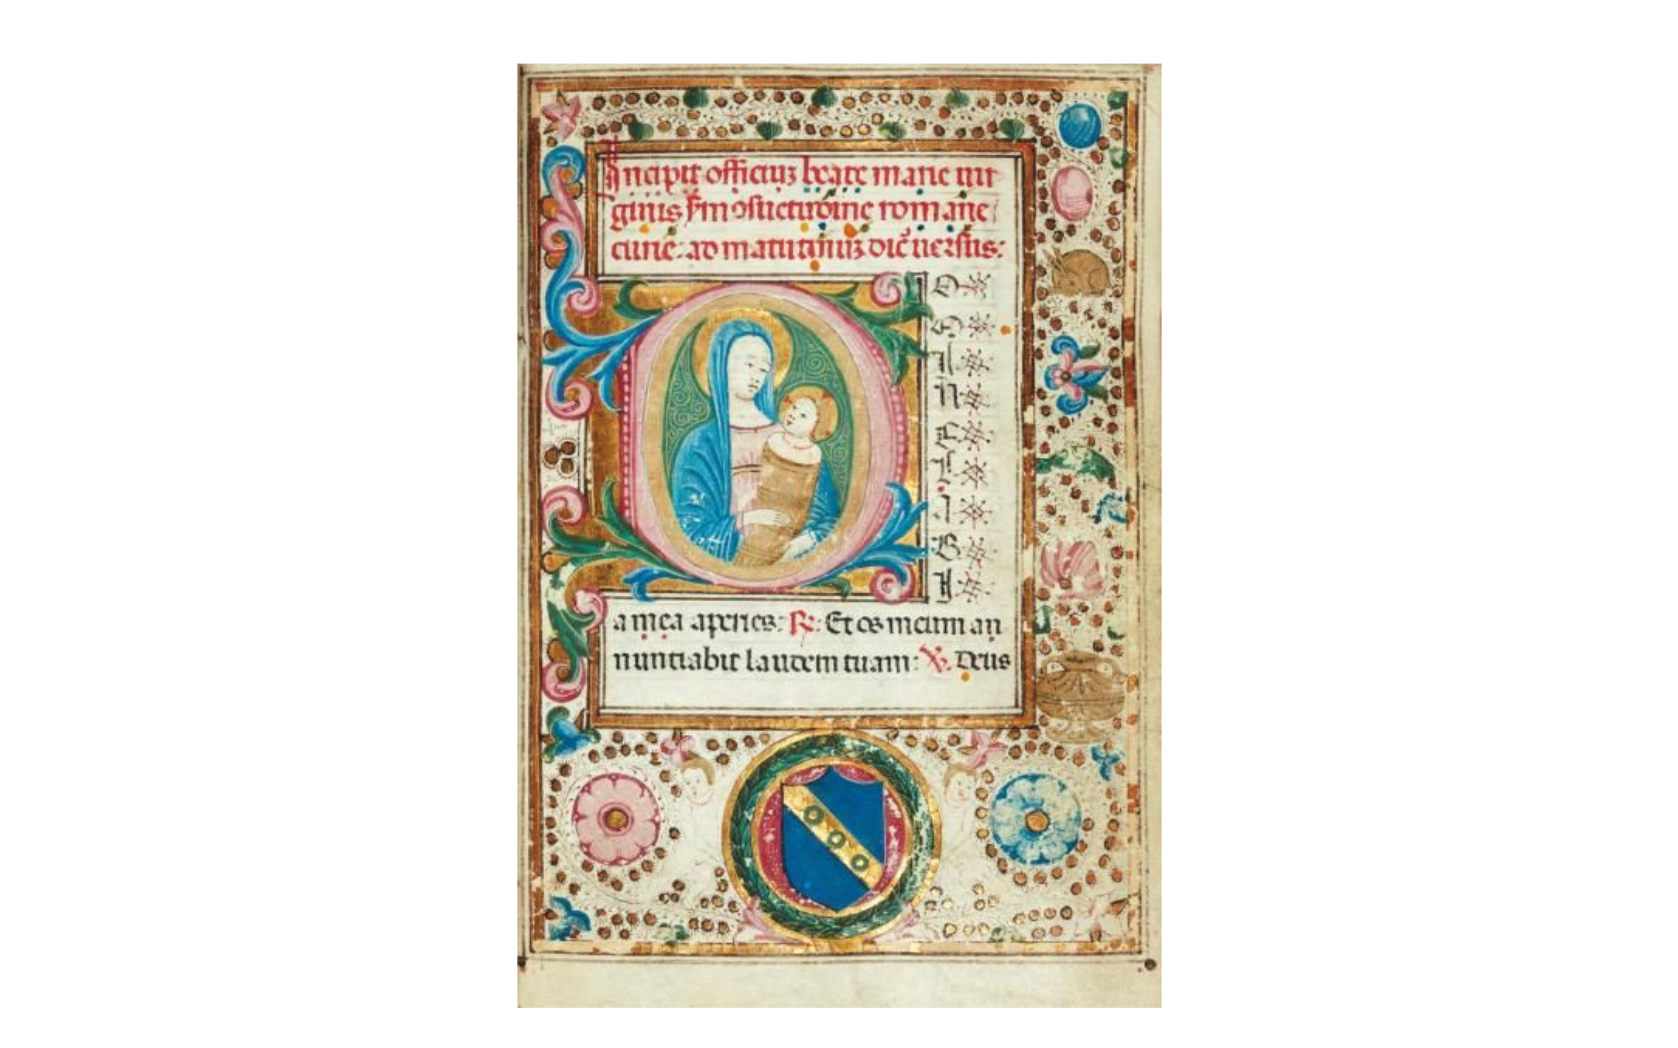 Incipit officiuȝ beate marie uir
ginis s̃m ↄsuetudine romane
curie. ad matutinuȝ dic̃ uersus:
D
O
M
I
N
E
L
A
B
I
a mea aperies: ℟: Et os meum an
nuntiabit laudem tuam: ℣. Deus